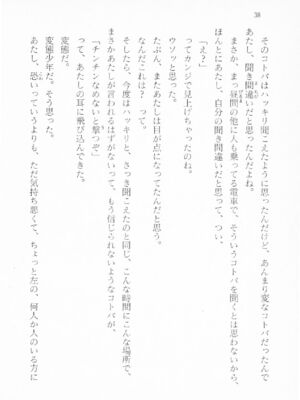 38
そのコトバはハッキリ聞こえたように思ったんだけど、あんまり変なコトバだったんで
あたし、聞き間違いだと思ったんだよね。
まさか、まっ昼間の他に人も乗ってる電車で、そういうコトバを聞くとは思わないから、
ほんとにあたし、自分の聞き間違いだと思って、つい、
「え？」
ってカンジで見上げちゃったのね。
ウソッと思った。
たぶん、またあたしは目が点になってたんだと思う。
なんだこれは？ って。
そしたら、今度はハッキリと、さっき聞こえたのと同じ、こんな時間にこんな場所で、
まさかあたしが言われるはずがないって、もう信じられないようなコトバが、
「チンチンなめないと撃つぞ」
って、あたしの耳に飛び込んできた。
変態だ。
変態少年だ。そう思った。
あたし、恐いっていうよりも、ただ気持ち悪くて、ちょっと左の、何人か人のいる方に